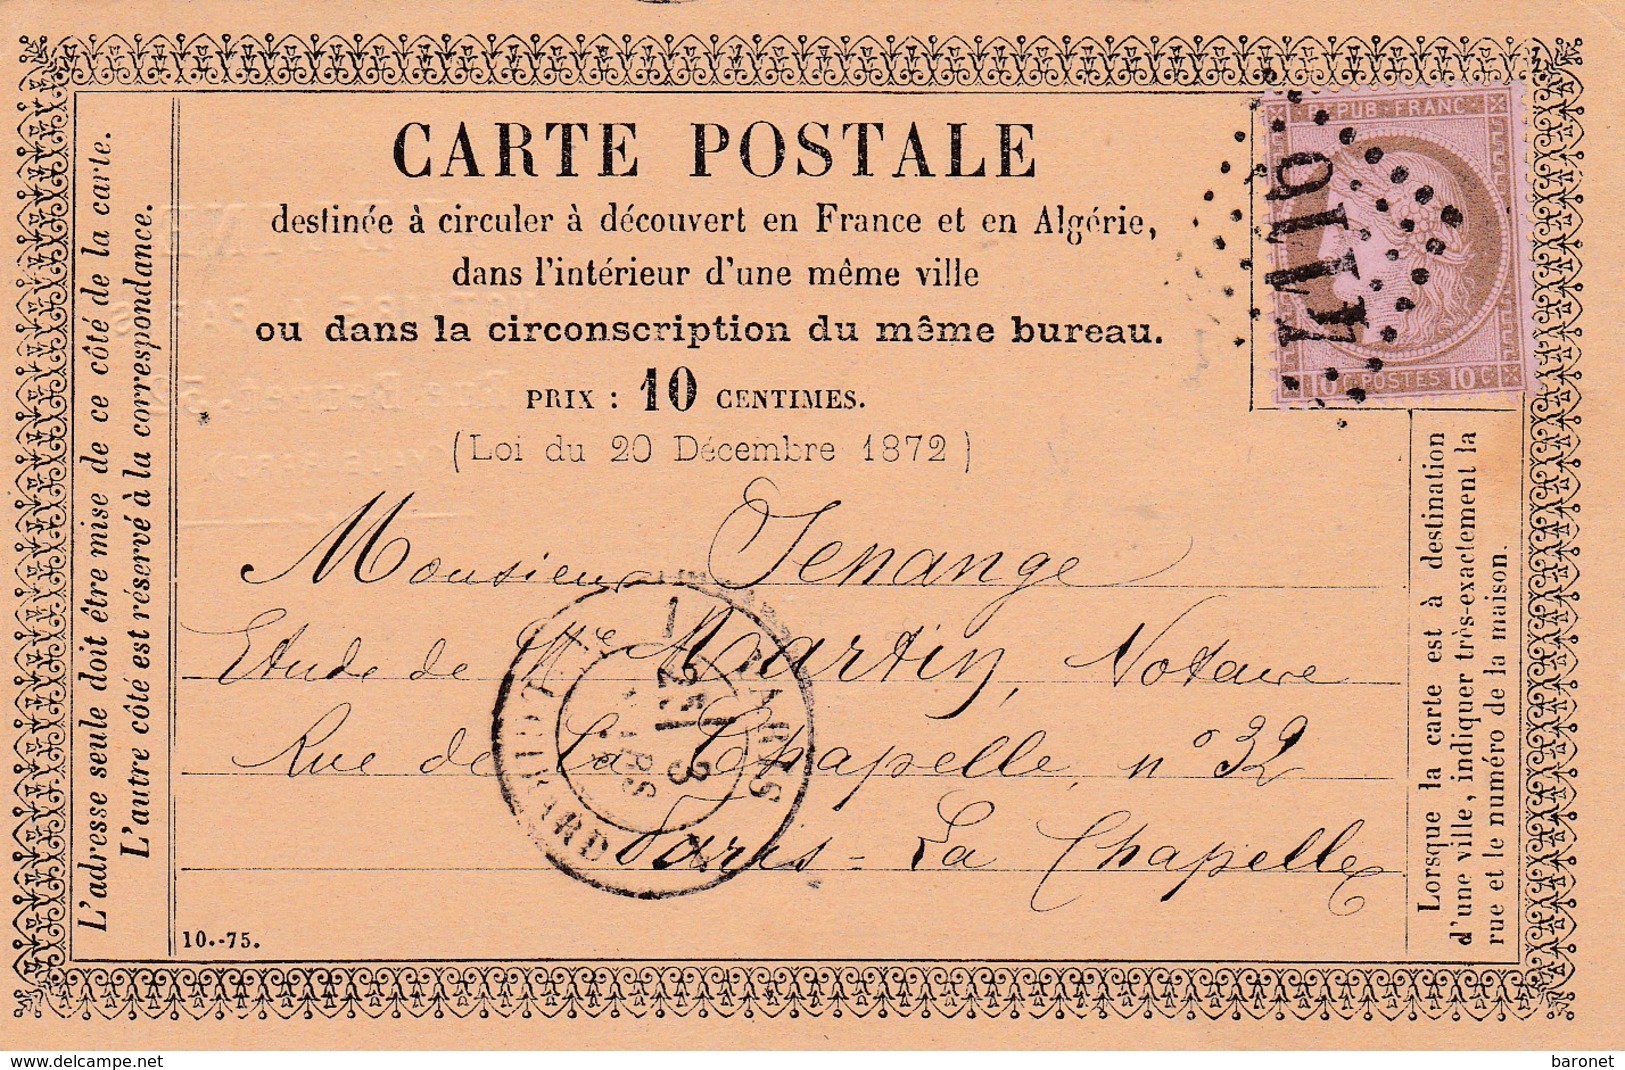 CARTE POSTALE
destinée à circuler à découvert en France et en Algérie,
dans l'intérieur d'une même ville
ou dans la circonscription du même bureau.
PRIX : 10 CENTIMES.
(Loi du 20 Décembre 1872)
REPUB · FRANC
10 C · POSTES · 10 C
L'adresse seule doit être mise de ce côté de la carte.
L'autre côté est réservé à la correspondance.
Monsieur Jenange
Etude de Me Martin, Notaire
Rue de la Chapelle, n° 32
Paris = La Chapelle
PARIS
1
2E/
3
MARS
10.-75.
Lorsque la carte est à destination
d'une ville, indiquer très-exactement la
rue et le numéro de la maison.
www.delcampe.net
baronet